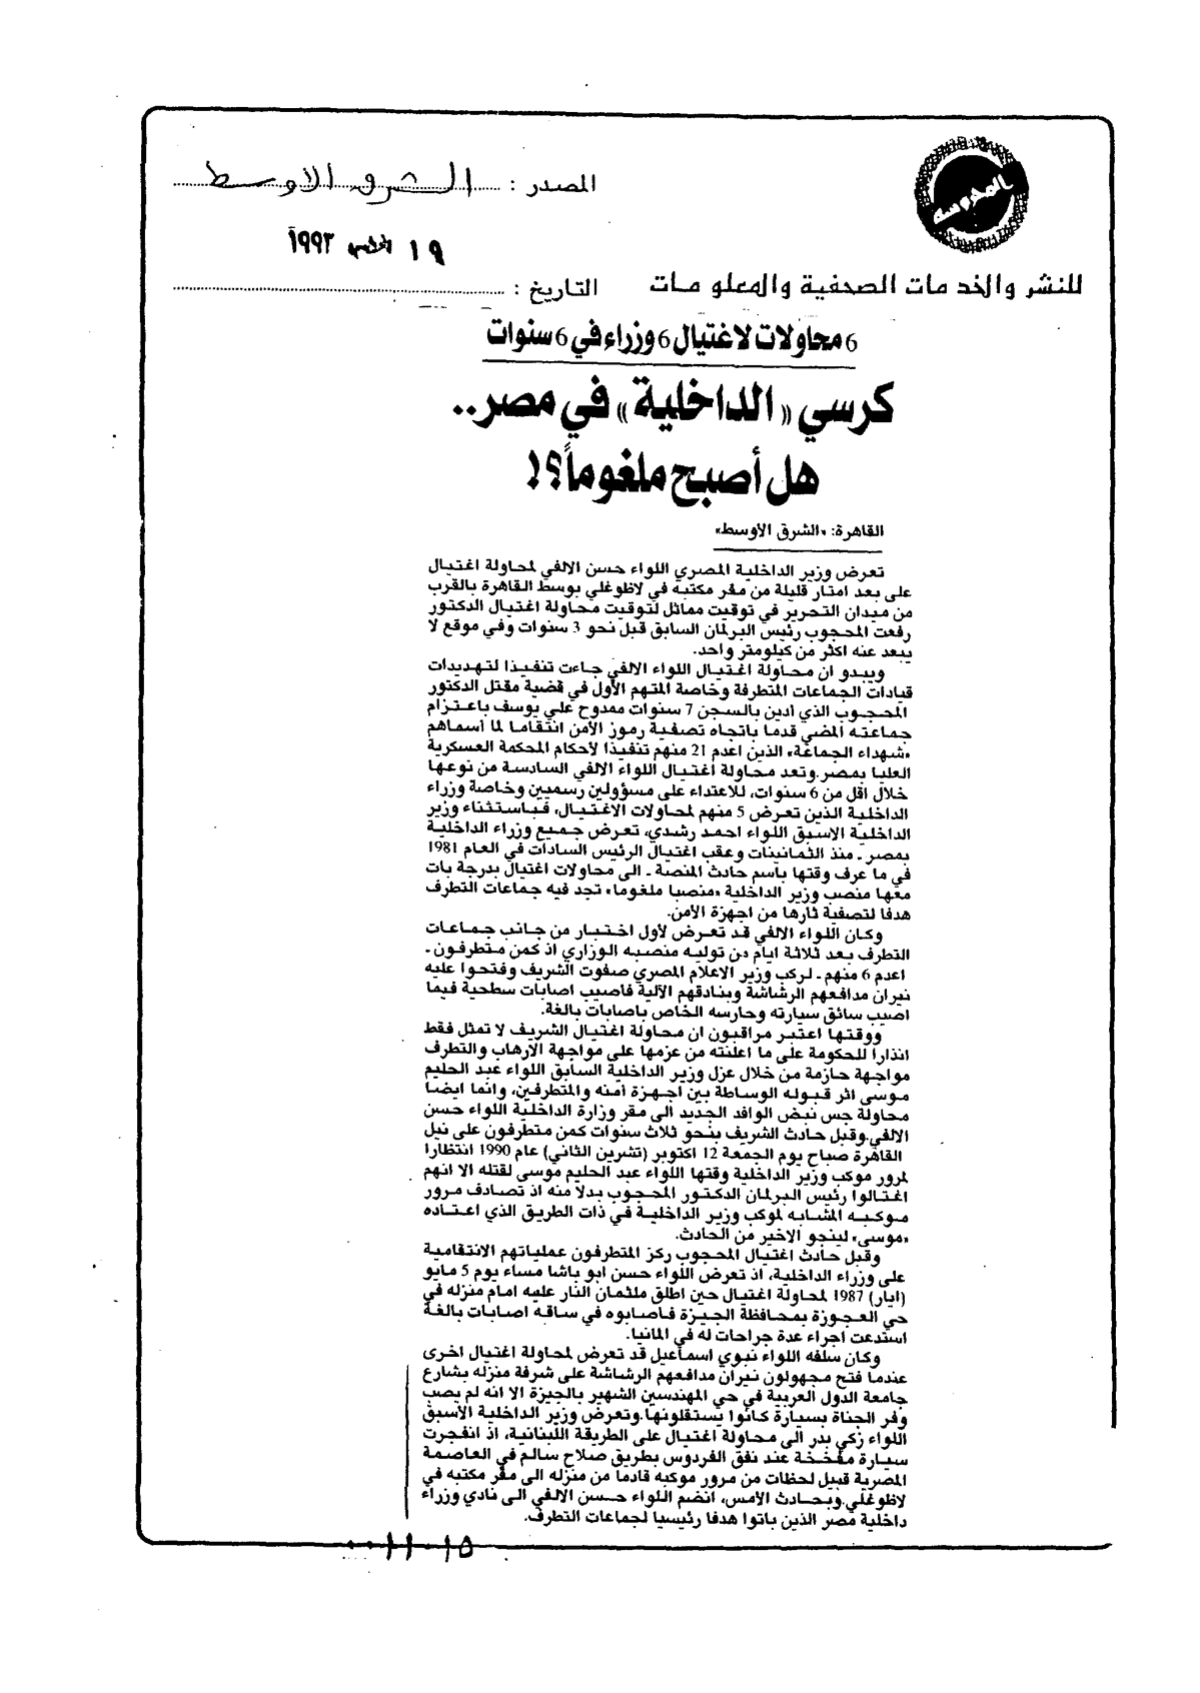 المحروسة
المصدر : الشرق الاوسط
١٩ اغسطس ١٩٩٣
للنشر والخدمات الصحفية والمعلومات
التاريخ :
6 محاولات لاغتيال 6 وزراء في 6 سنوات
كرسي «الداخلية» في مصر..
هل أصبح ملغوماً؟!
القاهرة: «الشرق الاوسط»
تعرض وزير الداخلية المصري اللواء حسن الالفي لمحاولة اغتيال
على بعد امتار قليلة من مقر مكتبه في لاظوغلي بوسط القاهرة بالقرب
من ميدان التحرير في توقيت مماثل لتوقيت محاولة اغتيال الدكتور
رفعت المحجوب رئيس البرلمان السابق قبل نحو 3 سنوات وفي موقع لا
يبعد عنه اكثر من كيلومتر واحد.
ويبدو ان محاولة اغتيال اللواء الالفي جاءت تنفيذا لتهديدات
قيادات الجماعات المتطرفة وخاصة المتهم الأول في قضية مقتل الدكتور
المحجوب الذي ادين بالسجن 7 سنوات ممدوح علي يوسف باعتزام
جماعته المضي قدما باتجاه تصفية رموز الأمن انتقاما لما أسماهم
«شهداء الجماعة» الذين اعدم 21 منهم تنفيذا لأحكام المحكمة العسكرية
العليا بمصر.وتعد محاولة اغتيال اللواء الالفي السادسة من نوعها
خلال اقل من 6 سنوات، للاعتداء على مسؤولين رسميين وخاصة وزراء
الداخلية الذين تعرض 5 منهم لمحاولات الاغتيال، فباستثناء وزير
الداخلية الاسبق اللواء احمد رشدي، تعرض جميع وزراء الداخلية
بمصر ـ منذ الثمانينات وعقب اغتيال الرئيس السادات في العام 1981
في ما عرف وقتها باسم حادث المنصة ـ الى محاولات اغتيال بدرجة بات
معها منصب وزير الداخلية «منصبا ملغوما» تجد فيه جماعات التطرف
هدفا لتصفية ثأرها من اجهزة الأمن.
وكان اللواء الالفي قد تعرض لأول اختبار من جانب جماعات
التطرف بعد ثلاثة ايام من توليه منصبه الوزاري اذ كمن متطرفون ـ
اعدم 6 منهم ـ لركب وزير الاعلام المصري صفوت الشريف وفتحوا عليه
نيران مدافعهم الرشاشة وبنادقهم الآلية فاصيب اصابات سطحية فيما
اصيب سائق سيارته وحارسه الخاص باصابات بالغة.
ووقتها اعتبر مراقبون ان محاولة اغتيال الشريف لا تمثل فقط
انذارا للحكومة على ما اعلنته من عزمها على مواجهة الارهاب والتطرف
مواجهة حازمة من خلال عزل وزير الداخلية السابق اللواء عبد الحليم
موسى اثر قبوله الوساطة بين اجهزة أمنه والمتطرفين، وانما ايضا
محاولة جس نبض الوافد الجديد الى مقر وزارة الداخلية اللواء حسن
الالفي.وقبل حادث الشريف بنحو ثلاث سنوات كمن متطرفون على نيل
القاهرة صباح يوم الجمعة 12 اكتوبر (تشرين الثاني) عام 1990 انتظارا
لمرور موكب وزير الداخلية وقتها اللواء عبد الحليم موسى لقتله الا انهم
اغتالوا رئيس البرلمان الدكتور المحجوب بدلا منه اذ تصادف مرور
موكبه المشابه لموكب وزير الداخلية في ذات الطريق الذي اعتاده
«موسى» لينجو الاخير من الحادث.
وقبل حادث اغتيال المحجوب ركز المتطرفون عملياتهم الانتقامية
على وزراء الداخلية، اذ تعرض اللواء حسن ابو باشا مساء يوم 5 مايو
(ايار) 1987 لمحاولة اغتيال حين اطلق ملثمان النار عليه امام منزله في
حي العجوزة بمحافظة الجيزة فاصابوه في ساقه اصابات بالغة
استدعت اجراء عدة جراحات له في المانيا.
وكان سلفه اللواء نبوي اسماعيل قد تعرض لمحاولة اغتيال اخرى
عندما فتح مجهولون نيران مدافعهم الرشاشة على شرفة منزله بشارع
جامعة الدول العربية في حي المهندسين الشهير بالجيزة الا انه لم يصب
وفر الجناة بسيارة كانوا يستقلونها.وتعرض وزير الداخلية الأسبق
اللواء زكي بدر الى محاولة اغتيال على الطريقة اللبنانية، اذ انفجرت
سيارة مفخخة عند نفق الفردوس بطريق صلاح سالم في العاصمة
المصرية قبيل لحظات من مرور موكبه قادما من منزله الى مقر مكتبه في
لاظوغلي.وبحادث الأمس، انضم اللواء حسن الالفي الى نادي وزراء
داخلية مصر الذين باتوا هدفا رئيسيا لجماعات التطرف.